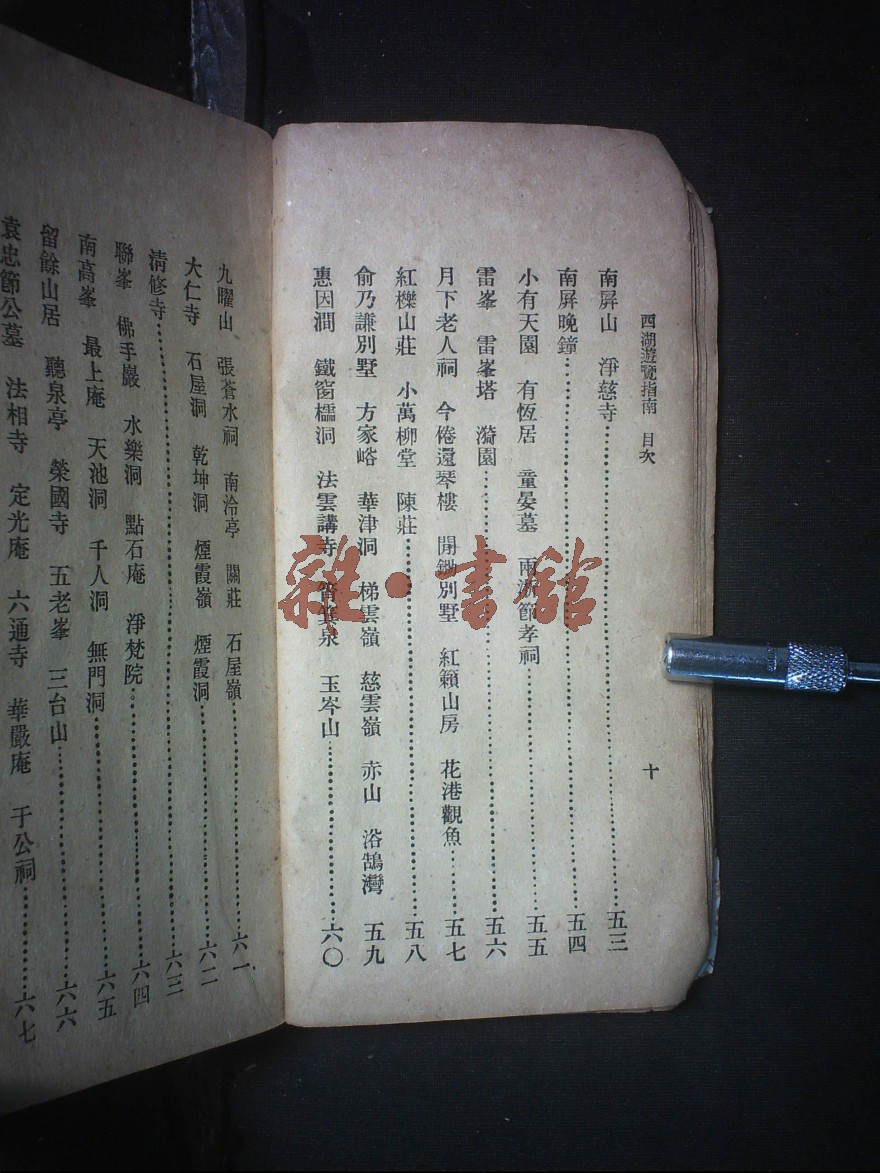 西湖遊覽指南　目次
十
南屏山　淨慈寺……五三
南屏晚鐘……五四
小有天園　有恆居　童晏墓　兩浙節孝祠……五五
雷峯　雷峯塔　漪園……五六
月下老人祠　今倦還琴樓　閒鋤別墅　紅籟山房　花港觀魚……五七
紅櫟山莊　小萬柳堂　陳莊……五八
俞乃謙別墅　方家峪　華津洞　梯雲嶺　慈雲嶺　赤山　浴鵠灣　五九
惠因澗　鐵窗櫺洞　法雲講寺　筲箕泉　玉岑山……六〇
九曜山　張蒼水祠　南泠亭　關莊　石屋嶺……六一
大仁寺　石屋洞　乾坤洞　煙霞嶺　煙霞洞……六二
清修寺……六三
聯峯　佛手巖　水樂洞　點石庵　淨梵院……六四
南高峯　最上庵　天池洞　千人洞　無門洞……六五
留餘山居　聽泉亭　榮國寺　五老峯　三台山……六六
袁忠節公墓　法相寺　定光庵　六通寺　華嚴庵　于公祠……六七
雜·書館